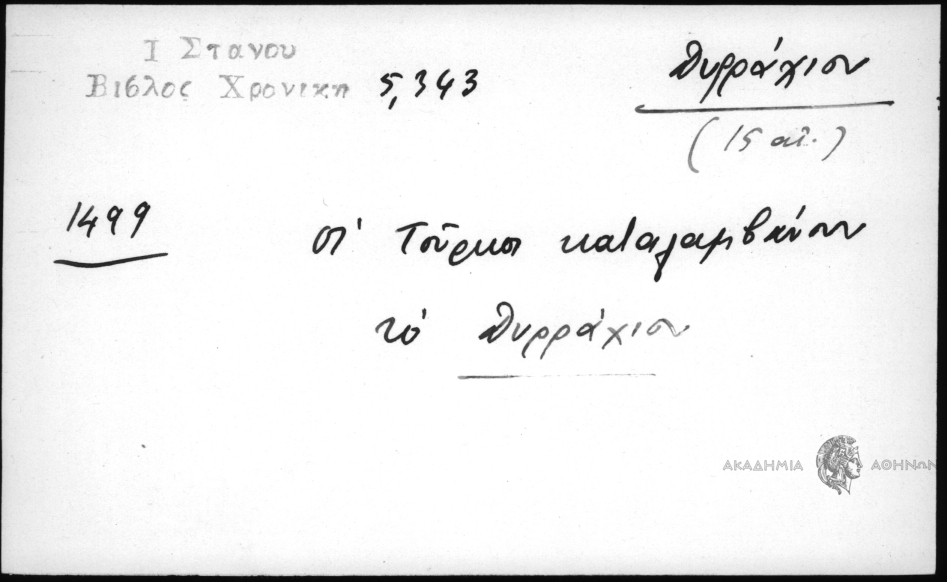 Ι Στανου
Βιβλος Χρονικη 5,343
Δυρράχιον
(15 αἰ.)
1499
οἱ Τοῦρκοι καταλαμβάνουν
τὸ Δυρράχιον
ΑΚΑΔΗΜΙΑ ΑΘΗΝΩΝ